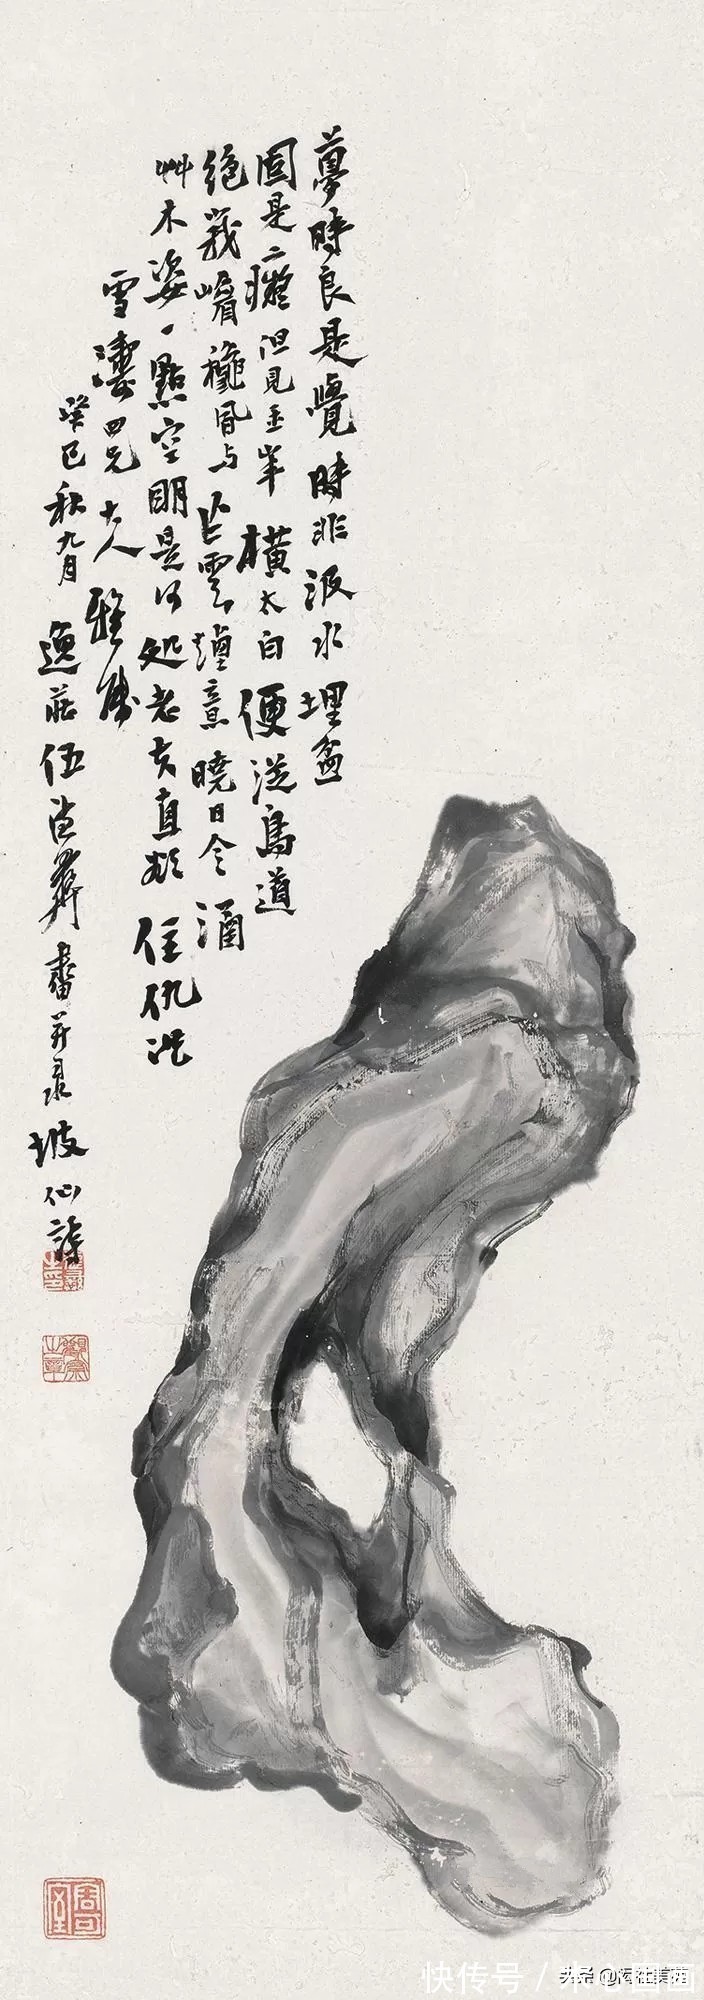 夢時良是覺時非汲水埋盆
固是癡但見玉峯橫太白便從鳥道
絕峩嵋龝風与作雲煙意曉日令涵
艸木姿一點空明是何処老夫真欲住仇池
雪四兄大人雅屬
癸巳秋九月逸莊伍德彝畫并录坡仙詩
快传号 /
头条 @